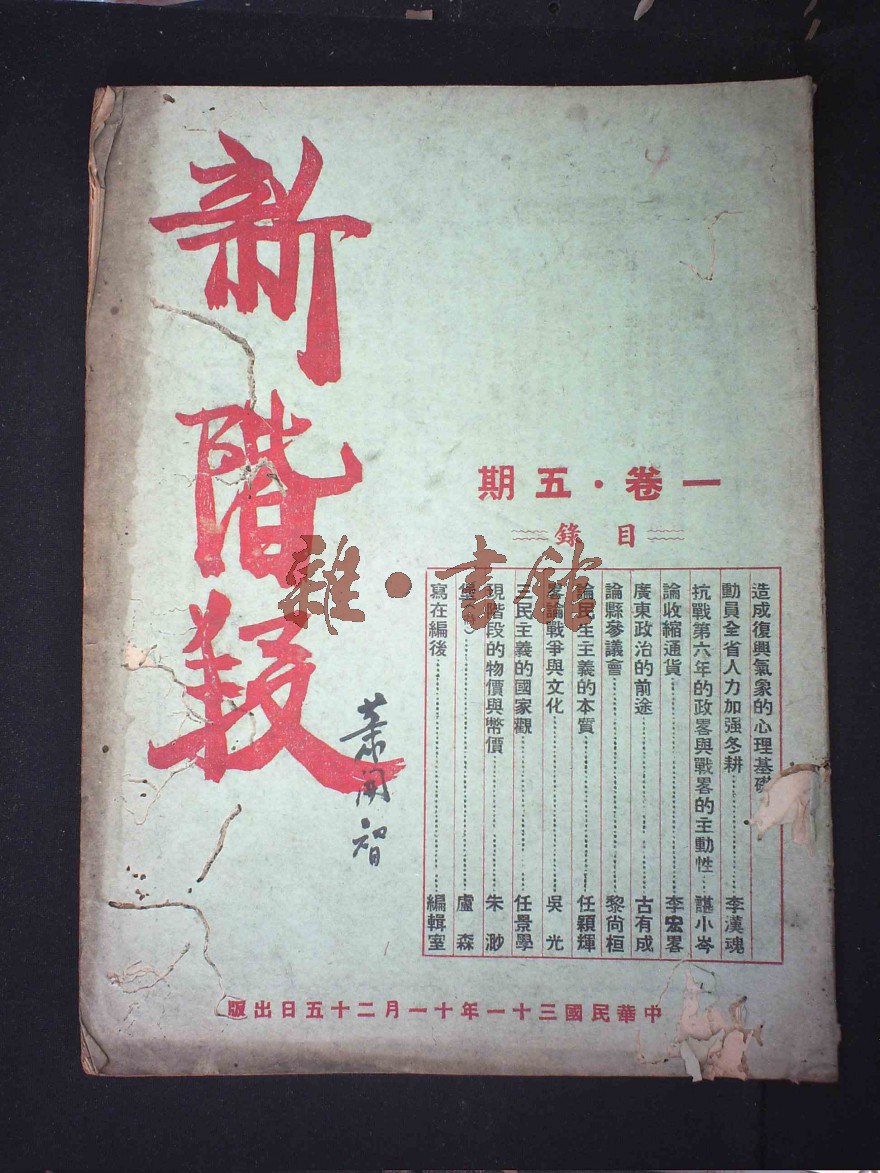 新階段
蕭開智
一卷·五期
目錄
造成復興氣象的心理基礎
動員全省人力加强冬耕……李漢魂
抗戰第六年的政畧與戰畧的主動性……諶小岑
論收縮通貨……李宏畧
廣東政治的前途……古有成
論縣參議會……黎尙桓
論民生主義的本質……任穎輝
論戰爭與文化……吳光
三民主義的國家觀……任景學
現階段的物價與幣價……朱渺
……盧森
寫在編後……編輯室
中華民國三十一年十一月二十五日出版
雜·書館